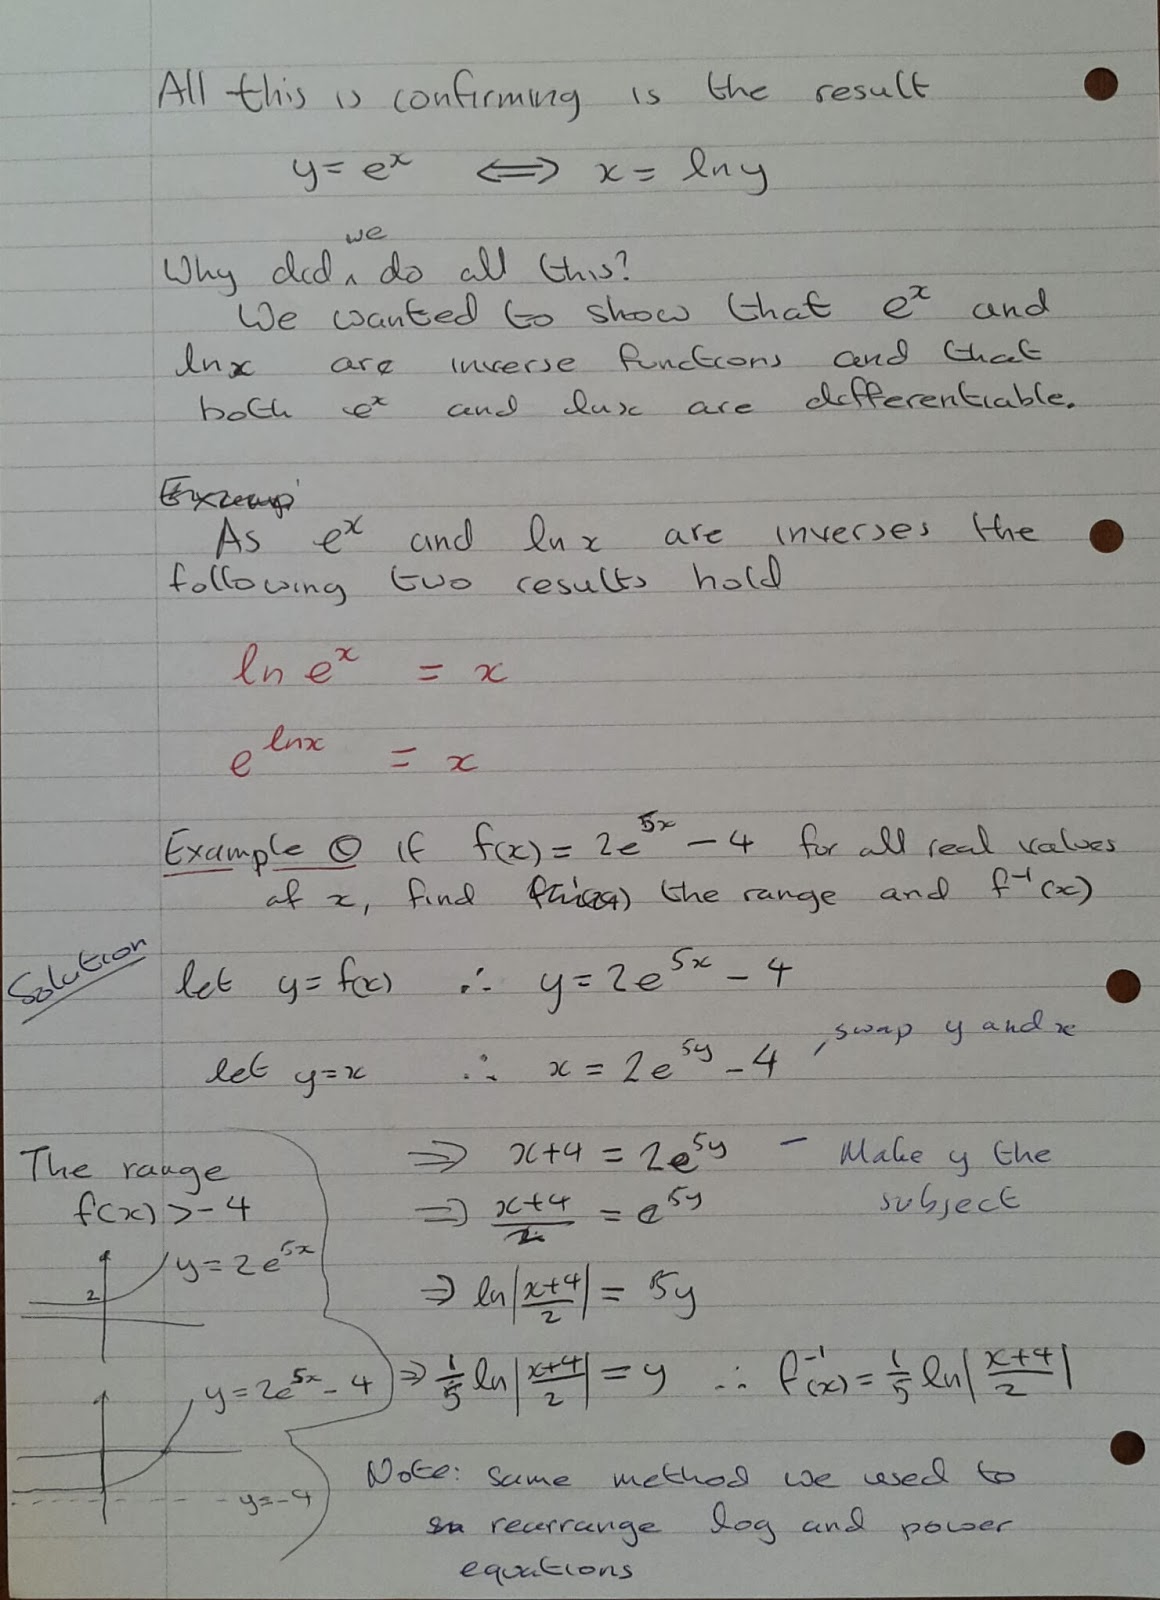 All this is confirming is the result
y = e^x ⟺ x = ln y
we
Why did ‸ do all this?
We wanted to show that e^x and
ln x are inverse functions and that
both e^x and ln x are differentiable.
As e^x and ln x are inverses the
following two results hold
ln e^x = x
e^{ln x} = x
Example © If f(x) = 2e^{5x} - 4 for all real values
of x, find the range and f^{-1}(x)
Solution
let y = f(x) ∴ y = 2e^{5x} - 4
, swap y and x
let y = x ∴ x = 2e^{5y} - 4
⇒ x+4 = 2e^{5y} - Make y the
subject
⇒ (x+4)/2 = e^{5y}
⇒ ln|(x+4)/2| = 5y
⇒ 1/5 ln|(x+4)/2| = y ∴ f^{-1}(x) = 1/5 ln|(x+4)/2|
The range
f(x) > -4
y = 2e^{5x}
2
y = 2e^{5x} - 4
y = -4
Note: same method we used to
rearrange log and power
equations